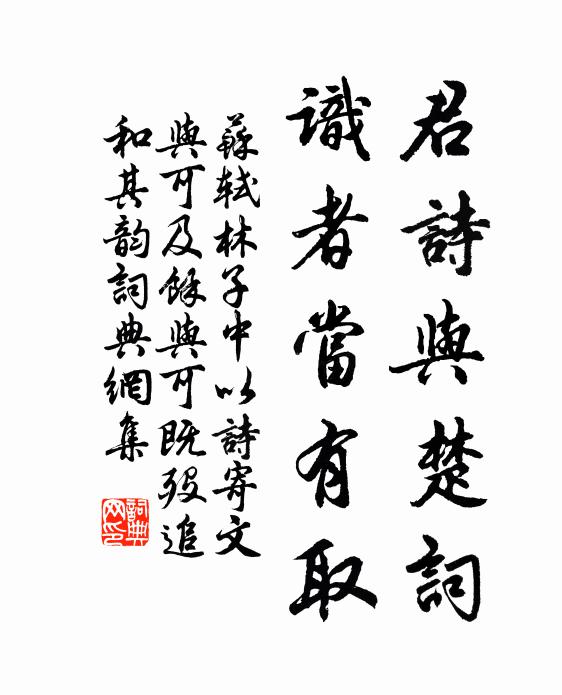 君詩與楚詞
識者當有取
蘇軾林子中以詩寄文
與可及餘與可既歿追
和其韵詞典網集
詞典网印